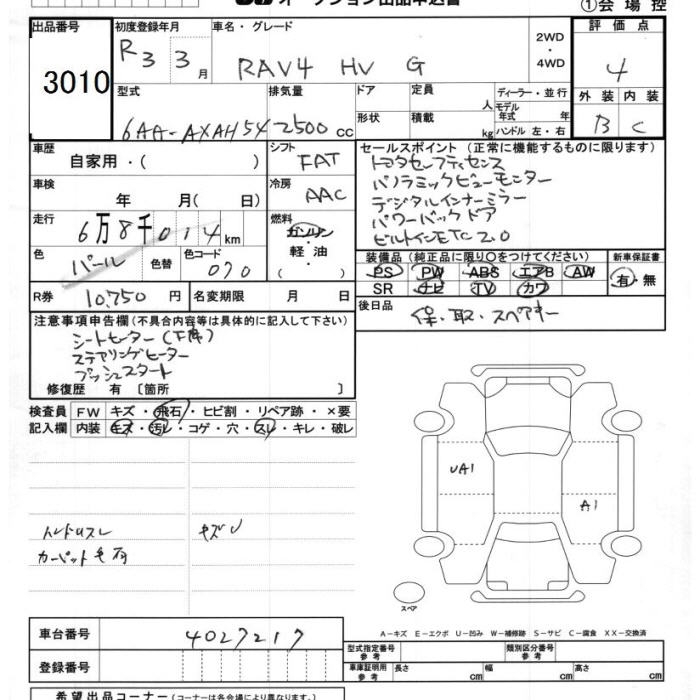 オークション出品申込書
①会場控
出品番号
3010
初度登録年月
R3 3月
車名・グレード
RAV4 HV G
2WD
・
4WD
評価点
4
外装 内装
B C
型式
6AA-AXAH54
排気量
2500 cc
ドア
形状
定員
人
積載
kg
ディーラー・並行
モデル年式 年
ハンドル 左・右
車歴
自家用・( )
シフト
FAT
車検
年 月( 日)
冷房
AAC
走行
6万8千014km
燃料
ガソリン
軽油
・
色
パール
色替
色コード
070
R券
10,750 円
名変期限 月 日
セールスポイント(正常に機能するものに限ります)
トヨタセーフティセンス
パノラミックビューモニター
デジタルインナーミラー
パワーバックドア
ビルトインETC2.0
装備品(純正品に限り○をつけてください)
PS PW ABS エアB AW
SR ナビ TV カワ
新車保証書
有・無
後日品
保・取・スペアキー
注意事項申告欄(不具合内容等は具体的に記入して下さい)
シートヒーター(下席)
ステアリングヒーター
プッシュスタート
修復歴 有 [箇所 ]
検査員
記入欄
FW キズ・飛石・ヒビ割・リペア跡・×要
内装 キズ・汚レ・コゲ・穴・スレ・キレ・破レ
トレトリスレ
キズU
カーペット毛羽
UA1
A1
スペア
A−キズ E−エクボ U−凹み W−補修跡 S−サビ C−腐食 XX−交換済
車台番号
4027217
登録番号
型式指定番号
参考
類別区分番号
参考
車庫証明用
参考
長さ cm 幅 cm 高さ cm
希望出品コーナー(コーナーは各会場により異なります)